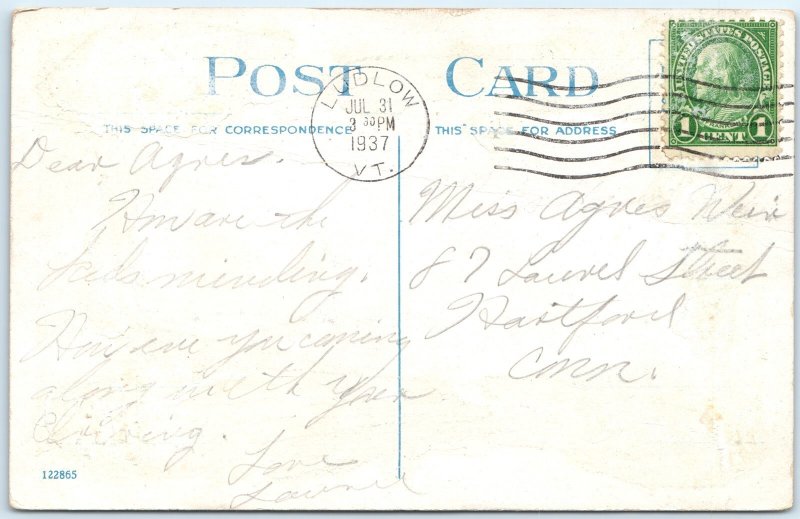 POST CARD
THIS SPACE FOR CORRESPONDENCE
THIS SPACE FOR ADDRESS
LUDLOW
JUL 31
3 30 PM
1937
VT.
UNITED STATES POSTAGE
1 CENT 1
Dear Agnes.
How are the
kids minding.
How are you coming
along with your
Love
Laurel
Miss Agnes Weir
87 Laurel Street
Hartford
Conn.
122865